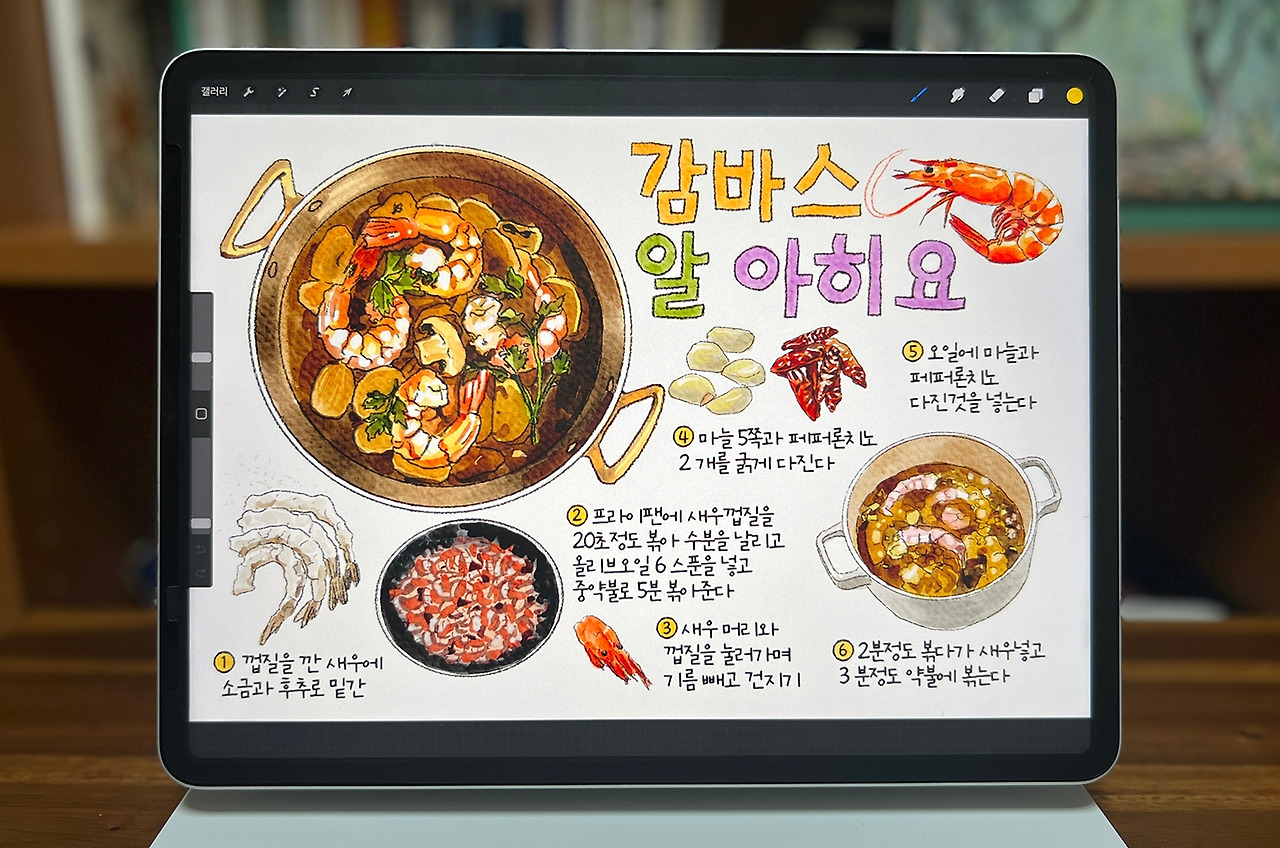 갤러리
감바스
알 아히요
① 껍질을 깐 새우에
소금과 후추로 밑간
② 프라이팬에 새우껍질을
20초정도 볶아 수분을 날리고
올리브오일 6 스푼을 넣고
중약불로 5분 볶아준다
③ 새우 머리와
껍질을 눌러가며
기름 빼고 건지기
④ 마늘 5쪽과 페퍼론치노
2 개를 굵게 다진다
⑤ 오일에 마늘과
페퍼론치노
다진것을 넣는다
⑥ 2분정도 볶다가 새우넣고
3 분정도 약불에 볶는다